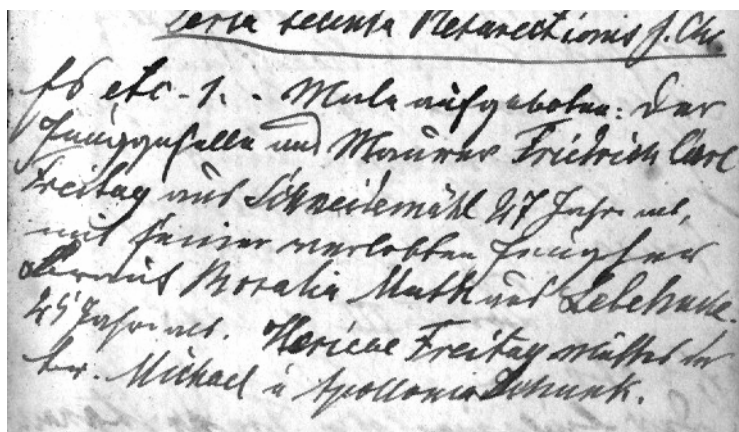 Feria secunda Resurectionis J. Chr
Es etc - 1. - Male aufgeboten: Der
Junggeselle und Maurer Friedrich Carl
Freitag aus Schneidemühl 27 Jahr alt,
mit seiner verlobten Jungfrau
Rosalia Muth aus Lebehnke.
25 Jahr alt. Freitag
Michael u Apollonia Schunk.